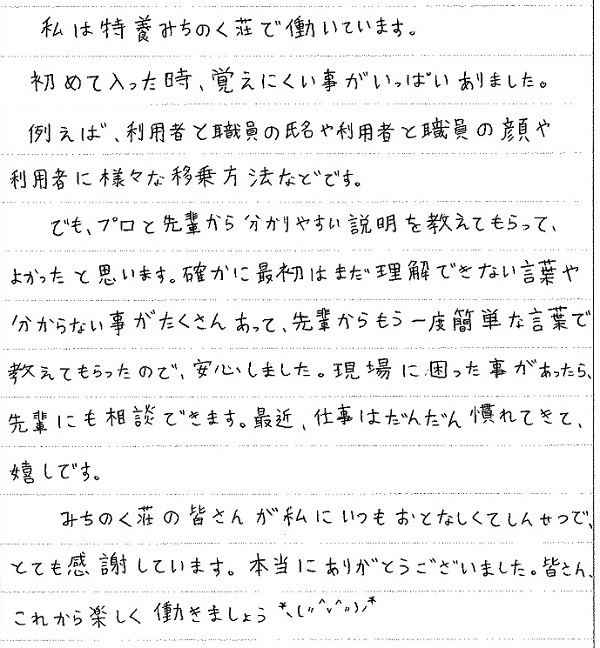 私は特養みちのく荘で働いています。
初めて入った時、覚えにくい事がいっぱいありました。
例えば、利用者と職員の氏名や利用者と職員の顔や
利用者に様々な移乗方法などです。
でも、プロと先輩から分かりやすい説明を教えてもらって、
よかったと思います。確かに最初はまだ理解できない言葉や
分からない事がたくさんあって、先輩からもう一度簡単な言葉で
教えてもらったので、安心しました。現場に困った事があったら、
先輩にも相談できます。最近、仕事はだんだん慣れてきて、
嬉しです。
みちのく荘の皆さんが私にいつもおとなしくてしんせつで、
とても感謝しています。本当にありがとうございました。皆さん、
これから楽しく働きましょう *ヽ(〃^v^〃)ノ*